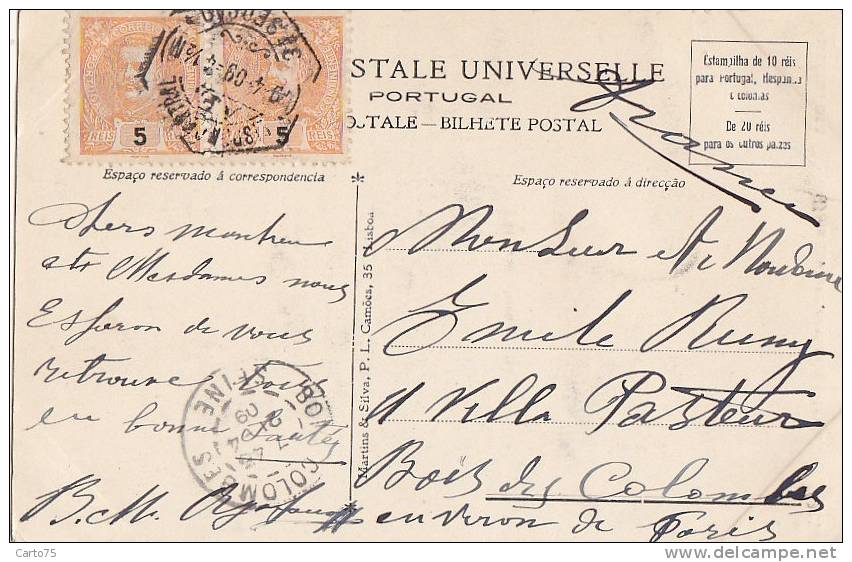 CORREIO
PORTUGAL
5
REIS
5
REIS
STALE UNIVERSELLE
PORTUGAL
OSTALE — BILHETE POSTAL
Estampilha de 10 réis
para Portugal, Hespanha
e colonias
De 20 réis
para os outros paizes
France
Espaço reservado á correspondencia
Espaço reservado á direcção
Chers monsieur
et Mesdames nous
Esperon de vous
retrouve tous
en bonne Santé
B. M.
Martins & Silva, P. L. Camões, 35 Lisboa
Monsieur et Madame
Emile Remy
11 Villa Pasteur
Bois des Colombes
environ de Paris
BOIS COLOMBES
SEINE
09
CENTRAL
9-4-09
Carto75
www.delcampe.net